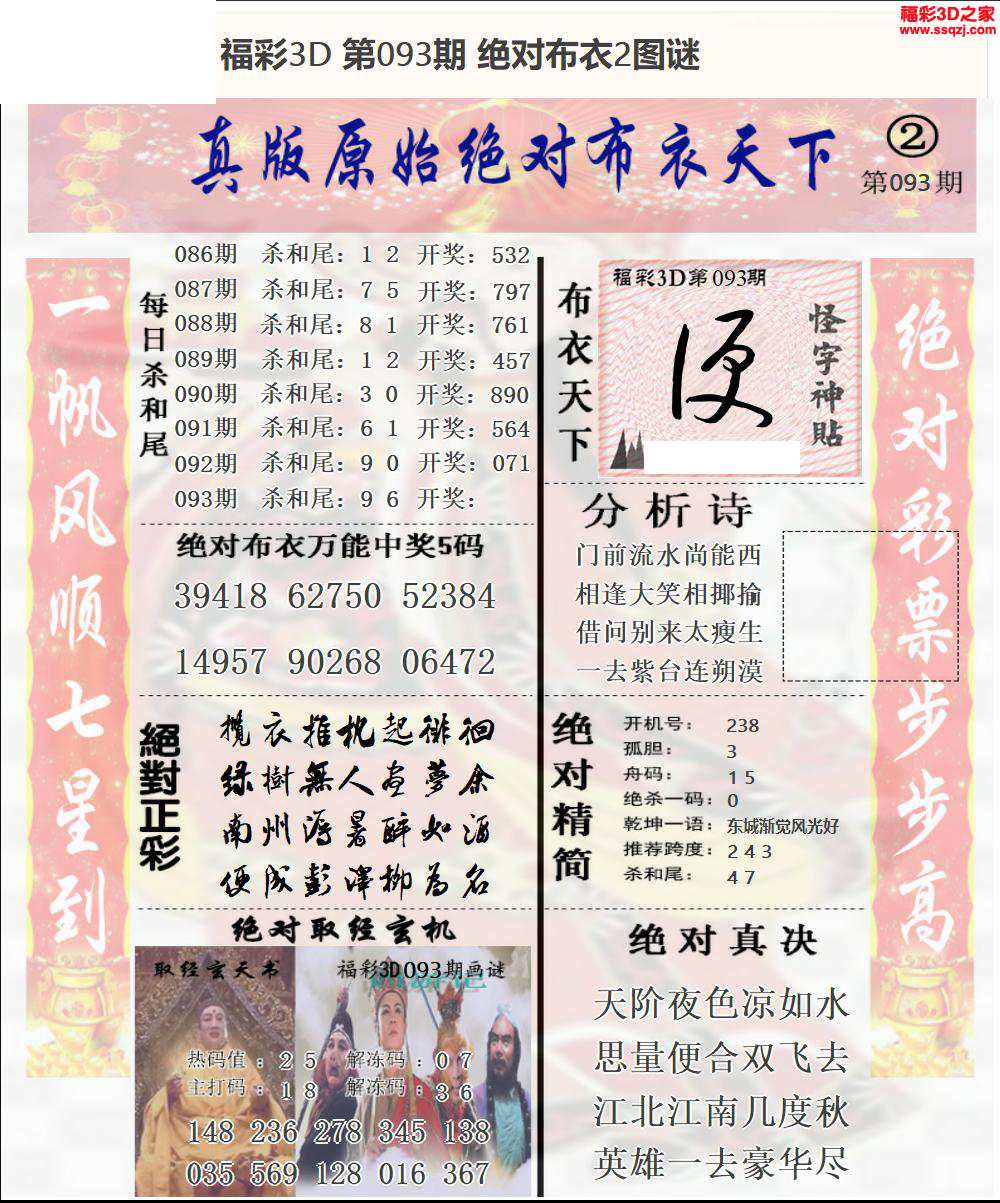 福彩3D之家
www.ssqzj.com
福彩3D 第093期 绝对布衣2图谜
真版原始绝对布衣天下
②
第093期
一帆风顺七星到
每日杀和尾
086期 杀和尾：1 2 开奖：532
087期 杀和尾：7 5 开奖：797
088期 杀和尾：8 1 开奖：761
089期 杀和尾：1 2 开奖：457
090期 杀和尾：3 0 开奖：890
091期 杀和尾：6 1 开奖：564
092期 杀和尾：9 0 开奖：071
093期 杀和尾：9 6 开奖：
绝对布衣万能中奖5码
39418 62750 52384
14957 90268 06472
絕對正彩
攬衣推枕起徘徊
绿樹無人昼夢余
南州溽暑醉如酒
便成彭澤柳為名
绝对取经玄机
取经玄天书
福彩3D093期画谜
热码值：2 5 解冻码：0 7
主打码：1 8 解冻码：3 6
148 236 278 345 138
035 569 128 016 367
布衣天下
福彩3D第093期
便
怪字神貼
分析诗
门前流水尚能西
相逢大笑相揶揄
借问别来太瘦生
一去紫台连朔漠
绝对精简
开机号：238
孤胆：3
舟码：1 5
绝杀一码：0
乾坤一语：东城渐觉风光好
推荐跨度：2 4 3
杀和尾：4 7
绝对真决
天阶夜色凉如水
思量便合双飞去
江北江南几度秋
英雄一去豪华尽
绝对彩票步步高